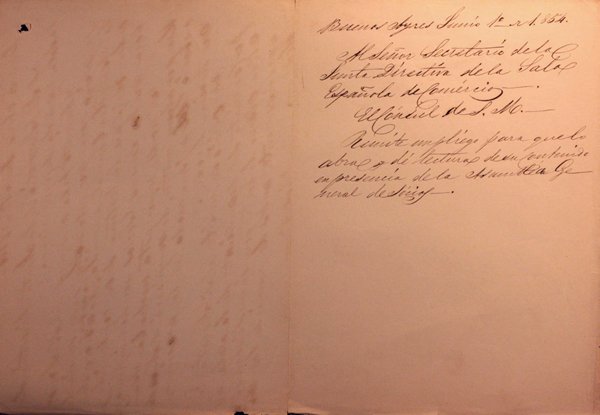 Buenos Ayres Junio 1º de 1.854.
Al Señor Secretario de la
Junta Directiva de la Sala
Española de Comercio,
El Cónsul de S. M.
Remite un pliego para que lo
abra y dé lectura de su contenido
en presencia de la Asamblea Ge
neral de Socios.